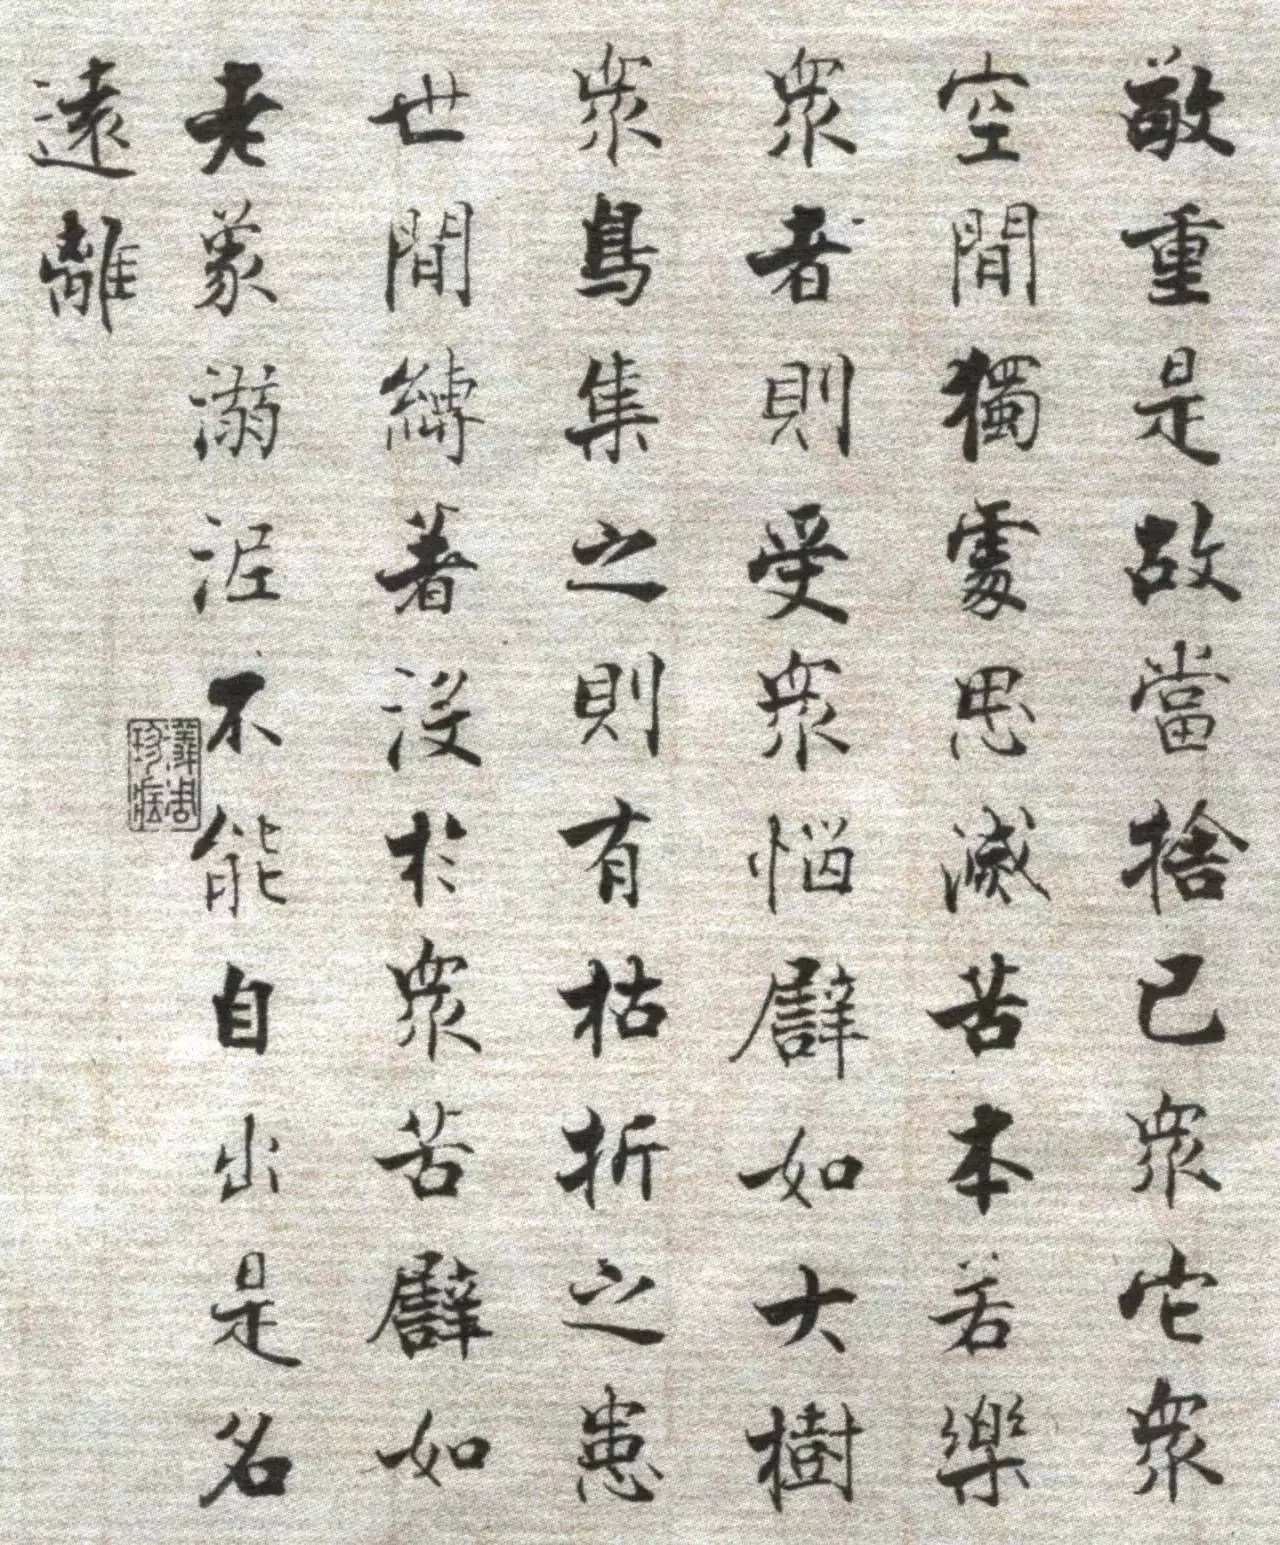 敬重是故當捨己衆它衆
空間獨處思滅苦本若樂
衆者則受衆惱譬如大樹
衆鳥集之則有枯折之患
世間縛著沒於衆苦譬如
老象溺泥不能自出是名
遠離